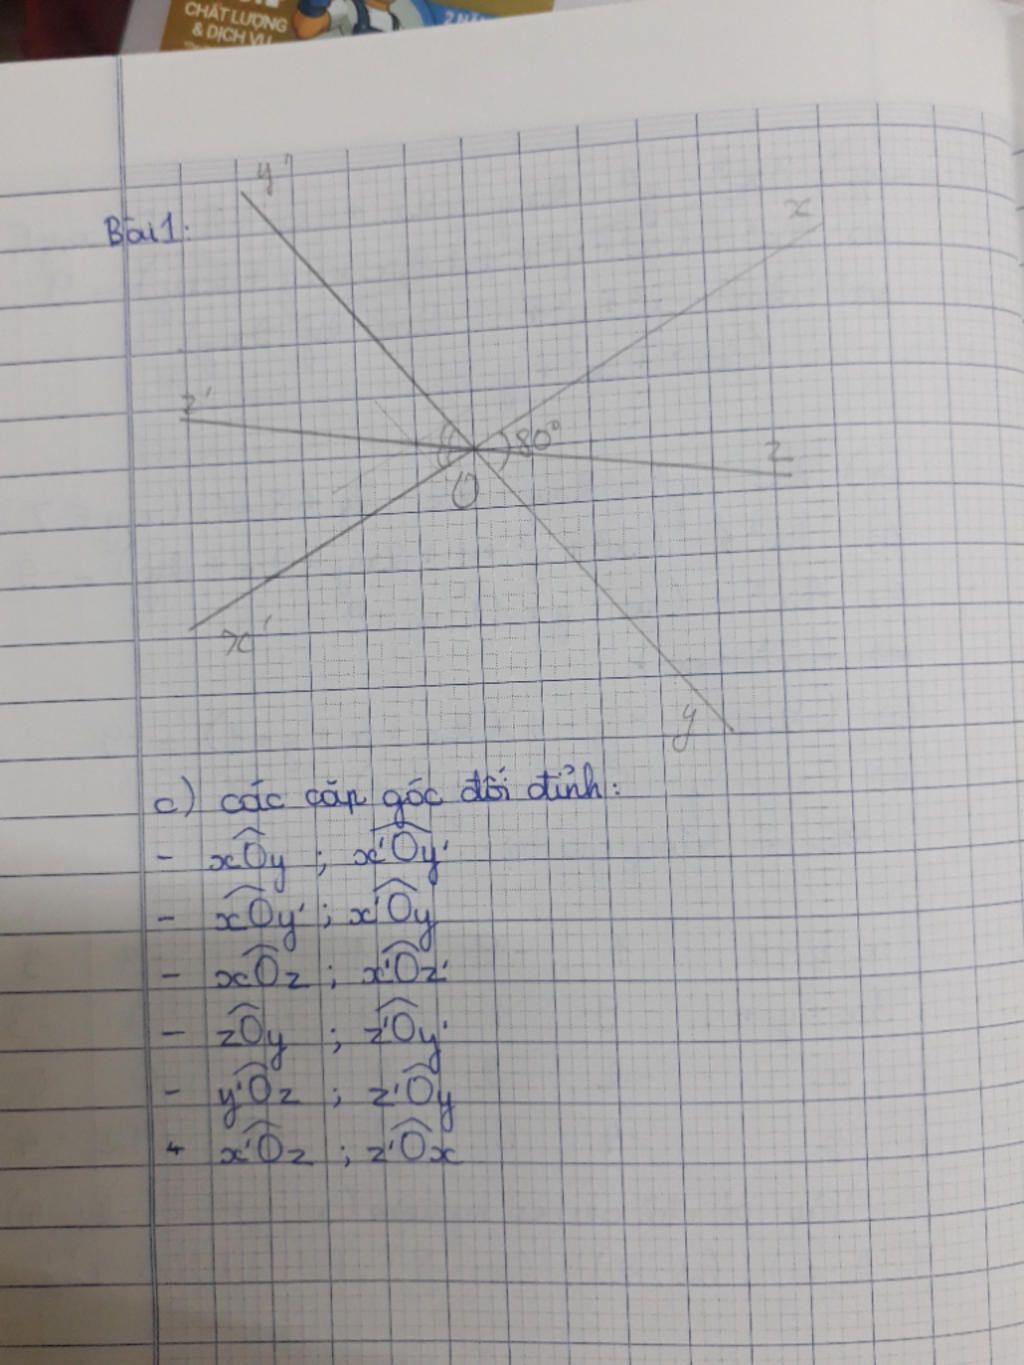 CHẤT LƯỢNG
& DỊCH VỤ
y'
x
Bài 1:
z'
80°
z
O
x'
y
c) các cặp góc đối đỉnh:
- xÔy ; x'Ôy'
- xÔy' ; x'Ôy
- xÔz ; x'Ôz'
- zÔy ; z'Ôy'
- y'Ôz ; z'Ôy
+ x'Ôz ; z'Ôx